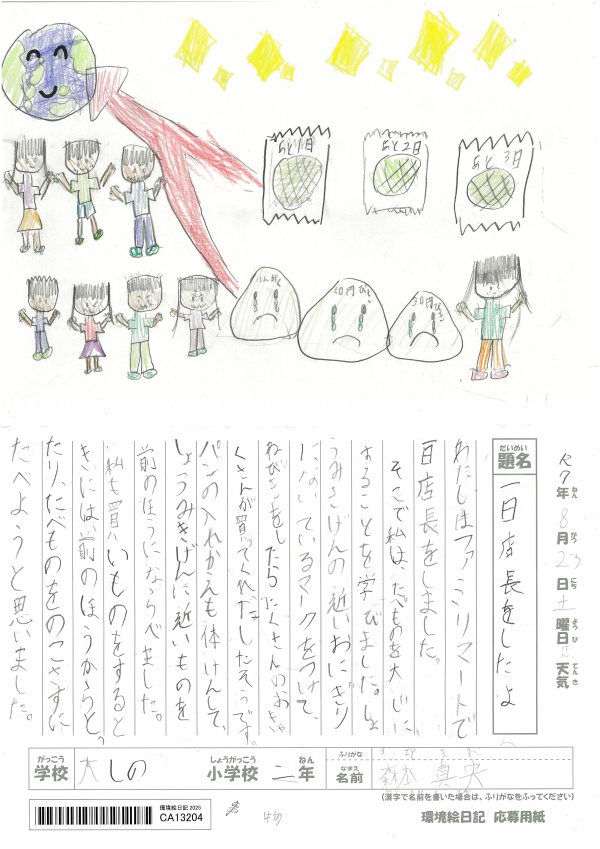 あと1日
あと2日
あと3日
50円びき
30円びき
R7年 8月 23日 土曜日 天気
題名
一日店長をしたよ
わたしはファミリマートで
百店長をしました。
そこで私は、たべものを大じに
することを学びました。しょ
うみきげんの近いおにぎり
にないているマークをつけて、
ねびきをしたらたくさんのおきゃ
くさんが買ってくれたしたそうです。
パンの入れかえも体けんして、
しょうみきげんに近いものを
前のほうにならべました。
私も買いものをすると
きには、前のほうからと
たり、たべものをのこさずに
たべようと思いました。
学校 大しの 小学校 二年 名前 森本 真央
(漢字で名前を書いた場合は、ふりがなをふってください)
環境絵日記 2025
CA13204
環境絵日記 応募用紙